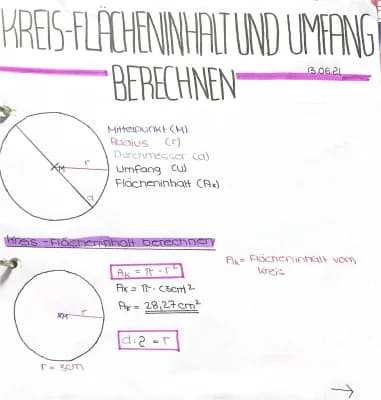 KREIS-FLÄCHENINHALT UND UMFANG
BERECHNEN
13.06.21
Mittelpunkt (M)
Radius (r)
Durchmesser (d)
Umfang (U)
Flächeninhalt (Aₖ)
M
r
d
Kreis-Flächeninhalt berechnen
Aₖ = π · r²
Aₖ = π · (3cm)²
Aₖ = 28,27cm²
d:2 = r
Aₖ= Flächeninhalt vom
Kreis
M
r
r = 3cm